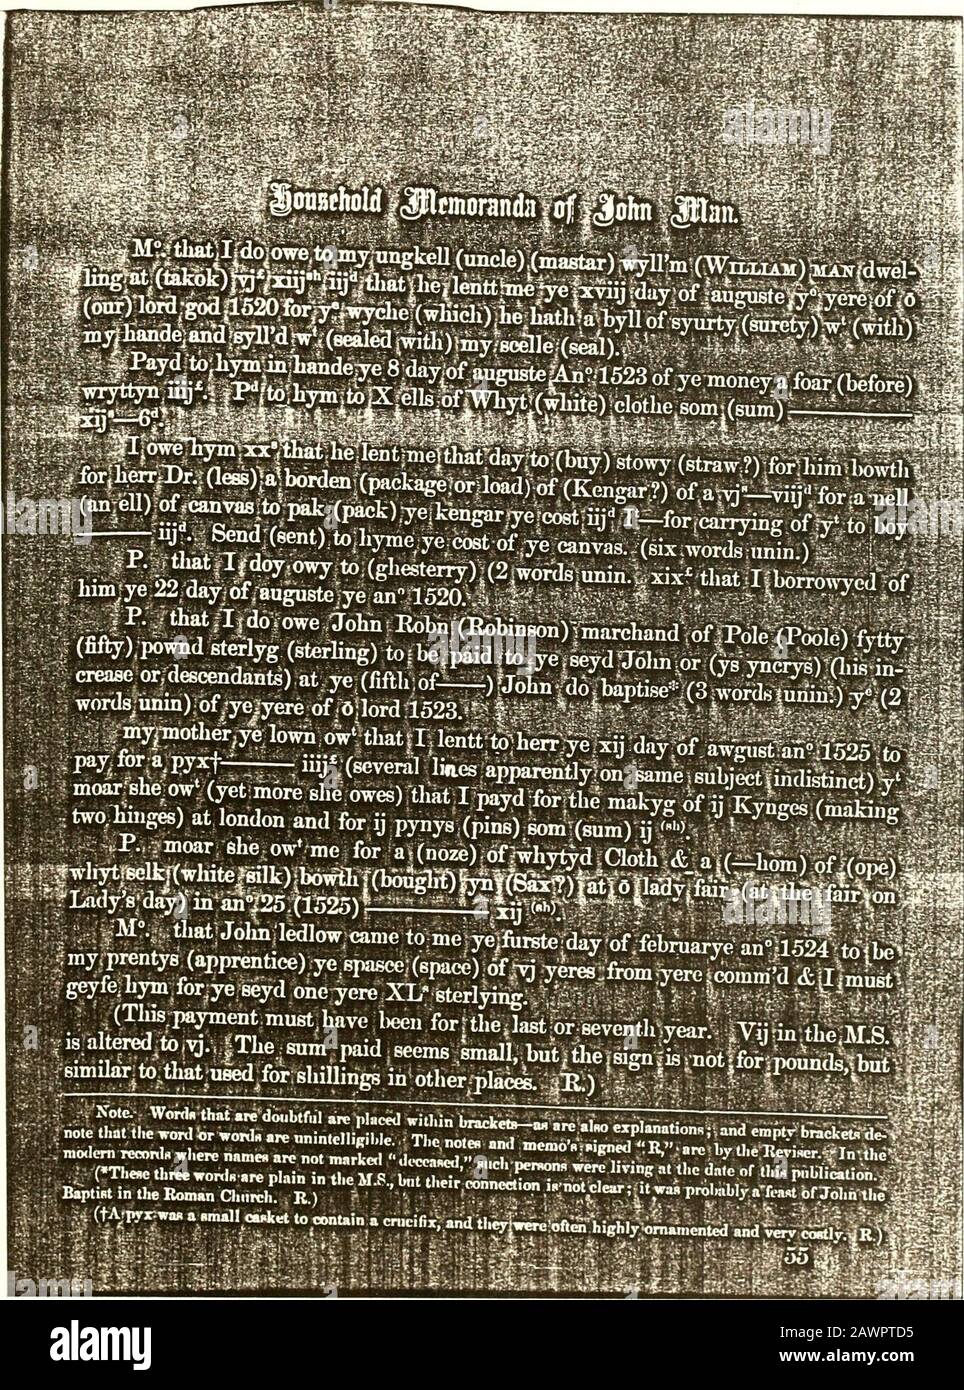 Household Memoranda of John Man.
Mº. that I do owe to my ungkell (uncle) (mastar) wyll'm (WILLIAM) MAN dwel-
ling at (takok) vj£ xiijsh iijd that he lentt me ye xviij day of auguste yº yere of ō
(our) lord god 1520 for yº wyche (which) he hath a byll of syurty (surety) wt (with)
my hande and syll'd wt (sealed with) my scelle (seal).
Payd to hym in hande ye 8 day of auguste Anº 1523 of ye money a foar (before)
wryttyn iiij£. Pd to hym to X ells of Whyt (white) clothe som (sum) ———
xijs—6d.
I owe hym xxs that he lent me that day to (buy) stowy (straw?) for him bowth
for herr Dr. (less) a borden (package or load) of (Kengar?) of a vjs—viijd for a nell
(an ell) of canvas to pak (pack) ye kengar ye cost iijd I—for carrying of yt to boy
——— iijd. Send (sent) to hyme ye cost of ye canvas. (six words unin.)
P. that I doy owy to (ghesterry) (2 words unin. xix£ that I borrowyed of
him ye 22 day of auguste ye anº 1520.
P. that I do owe John Robn (Robinson) marchand of Pole (Poole) fytty
(fifty) pownd sterlyg (sterling) to be paid to ye seyd John or (ys yncrys) (his in-
crease or descendants) at ye (fifth of——) John do baptise* (3 words unin.) yº (2
words unin) of ye yere of ō lord 1523.
my mother ye lown owt that I lentt to herr ye xij day of awgust anº 1525 to
pay for a pyx†——— iiij£ (several lines apparently on same subject indistinct) yt
moar she owt (yet more she owes) that I payd for the makyg of ij Kynges (making
two hinges) at london and for ij pynys (pins) som (sum) ij (sh).
P. moar she owt me for a (noze) of whytyd Cloth & a (—hom) of (ope)
whyt selk (white silk) bowth (bought) yn (Sax?) at ō lady fair (at the fair on
Lady's day) in anº 25 (1525) ——— xij (sh).
Mº. that John ledlow came to me ye furste day of februarye anº 1524 to be
my prentys (apprentice) ye spasce (space) of vj yeres from yere comm'd & I must
geyfe hym for ye seyd one yere XLs sterlying.
(This payment must have been for the last or seventh year. Vij in the M.S.
is altered to vj. The sum paid seems small, but the sign is not for pounds, but
similar to that used for shillings in other places. R.)
Note. Words that are doubtful are placed within brackets—as are also explanations; and empty brackets de-
note that the word or words are unintelligible. The notes and memo's signed "R," are by the Reviser. In the
modern records where names are not marked "deceased," such persons were living at the date of this publication.
(*These three words are plain in the M.S., but their connection is not clear; it was probably a feast of John the
Baptist in the Roman Church. R.)
(†A pyx was a small casket to contain a crucifix, and they were often highly ornamented and very costly. R.)
55
alamy
Image ID: 2AWPTD5
www.alamy.com